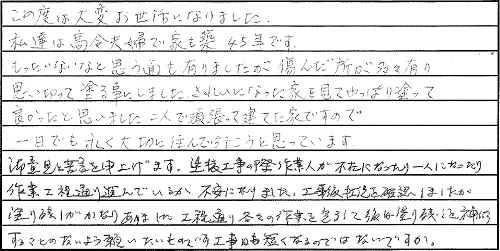 この度は大変お世話になりました。
私達は高令夫婦で家も築45年です。
もったいないなと思う面も有りましたが傷んだ所が多々有り
思い切って塗る事にしました。きれいになった家を見てやっぱり塗って
良かったと思いました。二人で頑張って建てた家ですので
一日でも永く大切に住んで行こうと思っています。
御意見苦言を申上げます。塗装工事の際作業人が不在になったり一人になったり
作業工程通り進んでいるか不安になりました。工事後拙宅を確認しましたが
塗り残しがかなりあり 工程通り各々の作業を 後日塗り残しを補修
することのないよう願いたいものです工事日も短くなるのではないですか。